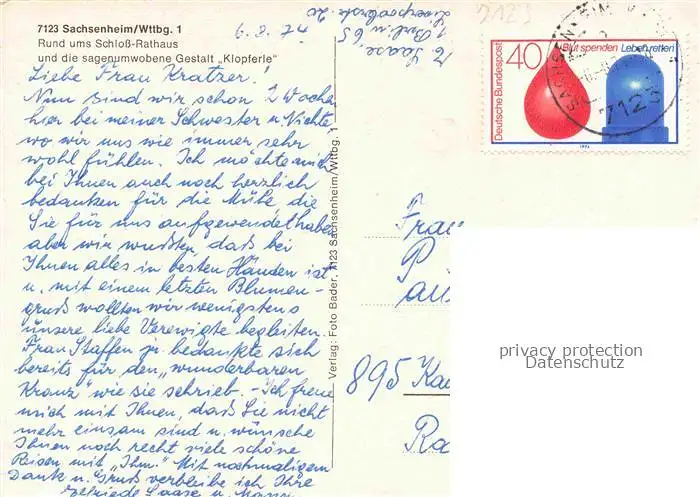 7123 Sachsenheim/Wttbg. 1
Rund ums Schloß-Rathaus
und die sagenumwobene Gestalt „Klopferle"
6.8.74
Liebe Frau Kratzer!
Nun sind wir schon 2 Wochen
hier bei meiner Schwester u. Nichte,
wo wir uns wie immer sehr
wohl fühlen. Ich möchte mich
bei Ihnen auch noch herzlich
bedanken für die Mühe die
Sie für uns aufgewendet haben,
aber wir wußten, daß bei
Ihnen alles in besten Händen ist
u. mit einem letzten Blumen-
gruß wollten wir wenigstens
unsere liebe Verewigte begleiten.
Frau Staffen jr. bedankte sich
bereits für den „wunderbaren
Kranz" wie sie schrieb. - Ich freue
mich mit Ihnen, daß Sie nicht
mehr einsam sind u. wünsche
Ihnen noch recht viele schöne
Reisen mit „Ihm." Mit nochmaligem
Dank u. Gruß verbleibe ich Ihre
Elfriede Saase u. Mann
Saase,
1 Berlin 65
Verlag: Foto Bader, 7123 Sachsenheim/Wttbg. 1
7123
Deutsche Bundespost
40
Blut spenden Leben retten!
1974
SACHSENHEIM
7123
Frau
895 Kau
privacy protection
Datenschutz